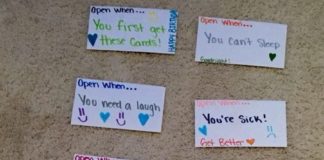 Open When...
You first get
these Cards!
HAPPY BIRTHDAY
Open When...
You Can't Sleep
Goodnight!
Open When...
You need a laugh
Open When...
You're Sick!
Get Better
Open When...